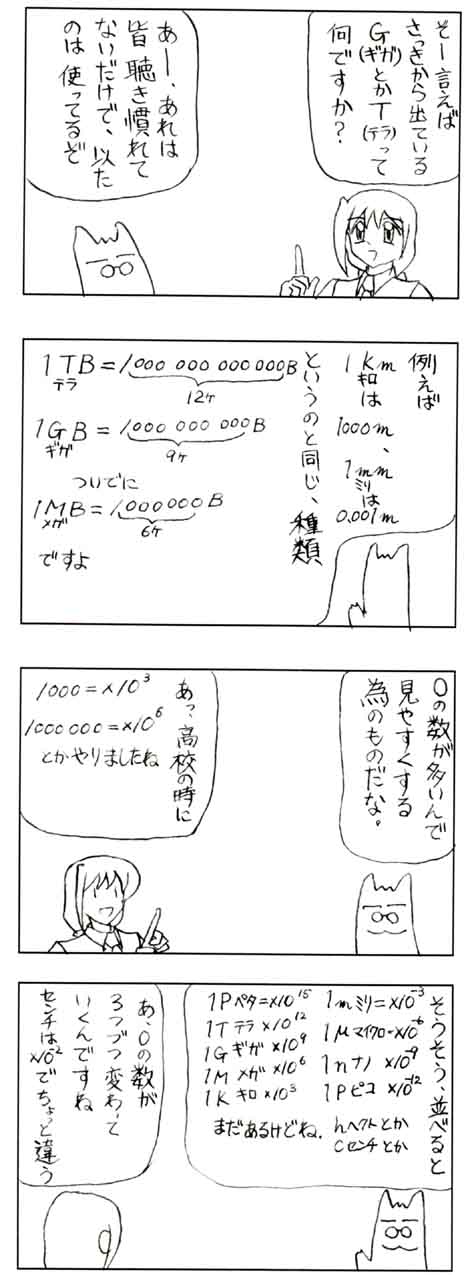 そー言えば
さっきから出ている
G(ギガ)とかT(テラ)って
何ですか?
あーー、あれは
皆聴き慣れて
ないだけで、以た
のは使ってるぞ
例えば
1Kmは
キロ
1000m、
1mmは
ミリ
0.001m
というのと同じ、種類
1TB=1000 000 000 000B
テラ
12ケ
1GB=1000 000 000B
ギガ
9ケ
ついでに
1MB=1000000B
メガ
6ケ
ですよ
0の数が多いんで
見やすくする
為のものだな。
あっ、高校の時に
1000=×10³
1000000=×10⁶
とかやりましたね
そうそう、並べると
1mミリ=×10⁻³
1μマイクロ=×10⁻⁶
1nナノ ×10⁻⁹
1Pピコ ×10⁻¹²
hヘクトとか
Cセンチとか
1Pペタ=×10¹⁵
1Tテラ×10¹²
1Gギガ×10⁹
1Mメガ×10⁶
1Kキロ×10³
まだあるけどね。
あ、0の数が
3つづつ変わって
いくんですね
センチは×10⁻²でちょっと違う